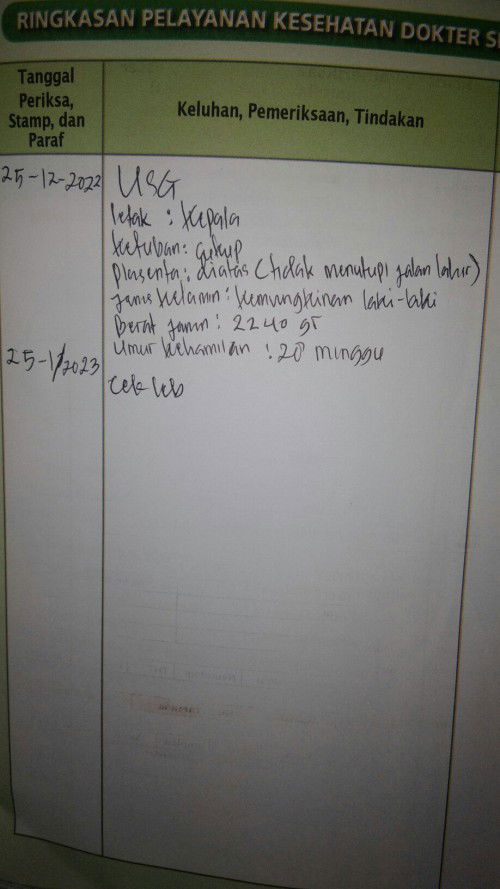 RINGKASAN PELAYANAN KESEHATAN DOKTER S
Tanggal
Periksa,
Stamp, dan
Paraf
Keluhan, Pemeriksaan, Tindakan
25-12-2022
USG
letak : Kepala
ketuban: cukup
plasenta: diatas (tidak menutupi jalan lahir)
jenis kelamin: kemungkinan laki-laki
Berat janin: 2240 gr
umur kehamilan : 28 minggu
25-1/2023
Cek lab